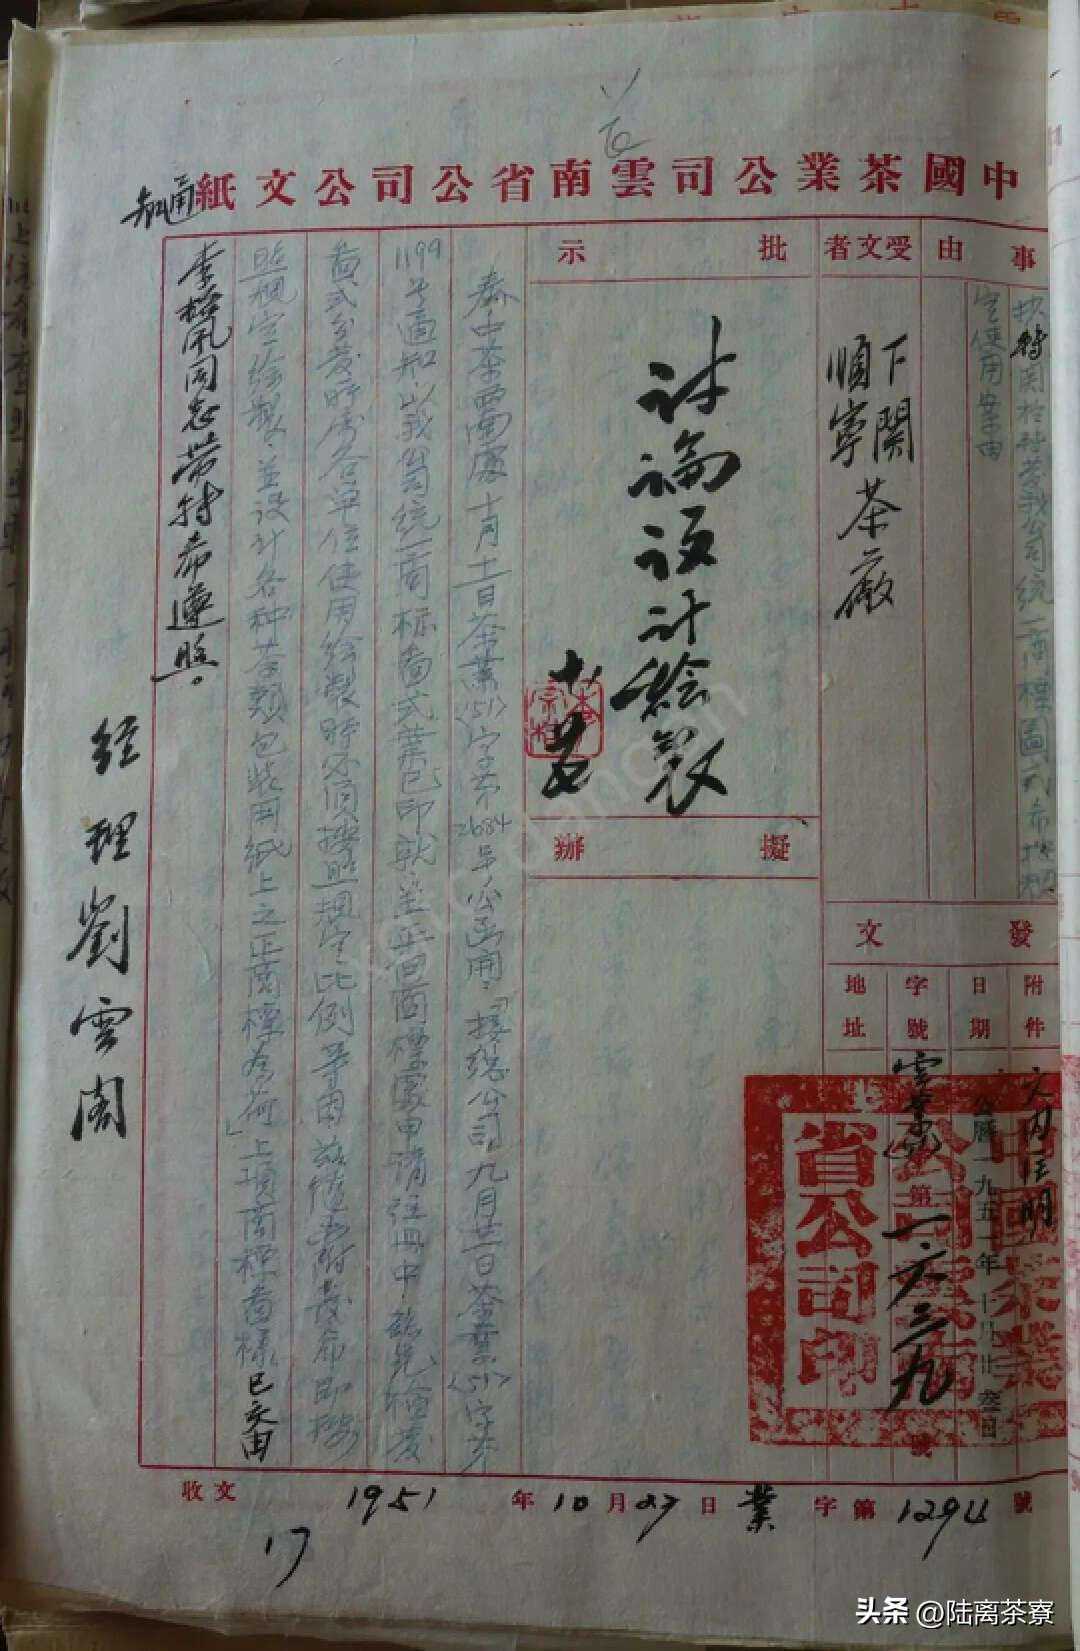 中國茶業公司雲南省公司公文紙
通知
事由
受文者
下關
順寧
茶廠
批示
討論設計繪製
擬辦
發文
附件
文內注明
日期
公曆一九五一年十月廿叁日
字號
第一六三九號
地址
奉中茶西南區十月十一日茶業(51)字第2684号公函開:「接總公司九月廿一日茶業(51)字第
1199号通知以我公司統一商标圖式業已印就並正向商標局申請註冊中茲先檢發
圖式至发時希各單位使用繪製時必須按照規定比例等由茲隨函附發希即按
照規定繪製並設計各种茶類包裝用紙上之正商標為荷」上項商標圖樣已交由
李樾夙同志帶轉希遵照。
經理劉雲閣
收文 1951年10月27日業字第1294號
17
中國茶業公司雲南省公司印
头条 @陆离茶寮